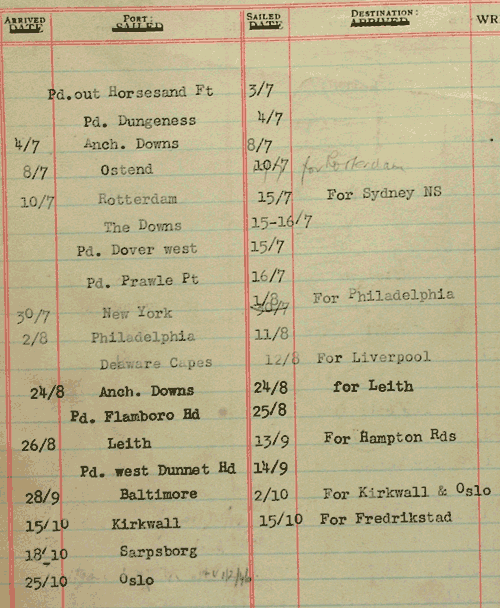 ARRIVED DATE PORT: SAILED SAILED DATE DESTINATION: ARRIVED WR
Pd.out Horsesand Ft 3/7
Pd. Dungeness 4/7
4/7 Anch. Downs 8/7
8/7 Ostend 10/7 for Rotterdam
10/7 Rotterdam 15/7 For Sydney NS
The Downs 15-16/7
Pd. Dover west 15/7
Pd. Prawle Pt 16/7
1/8 For Philadelphia
30/7 New York 30/7
2/8 Philadelphia 11/8
Deaware Capes 12/8 For Liverpool
24/8 Anch. Downs 24/8 for Leith
Pd. Flamboro Hd 25/8
26/8 Leith 13/9 For Hampton Rds
Pd. west Dunnet Hd 14/9
28/9 Baltimore 2/10 For Kirkwall & Oslo
15/10 Kirkwall 15/10 For Fredrikstad
18/10 Sarpsborg
25/10 Oslo